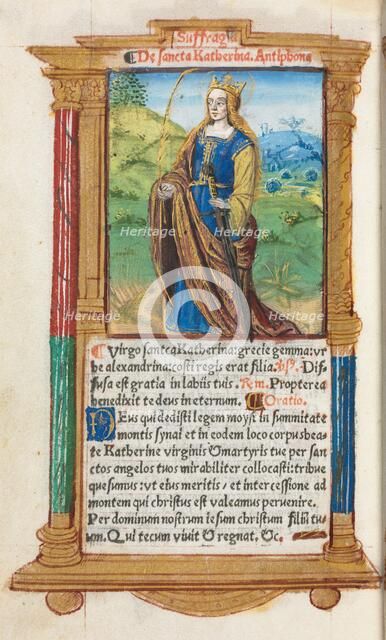 Suffragia
De sancta Katherina. Antiphona
Virgo sanctca Katherina: grecie gemma: vr
be alexandrina: costi regis erat filia. vs. Dif
fusa est gratia in labiis tuis. Rm. Propterea
benedixit te deus in eternum. Oratio.
Deus qui dedisti legem moysi in summitate
montis synai et in eodem loco corpus bea-
te Katherine virginis & martyris tue per san
ctos angelos tuos mirabiliter collocasti: tribue
quesumus: vt eius meritis et intercessione ad
montem qui christus est valeamus peruenire.
Per dominum nostrum iesum christum filiū tu-
um. Qui tecum viuit & regnat. &c.
Heritage Heritage
Heritage Heritage
Heritage Heritage